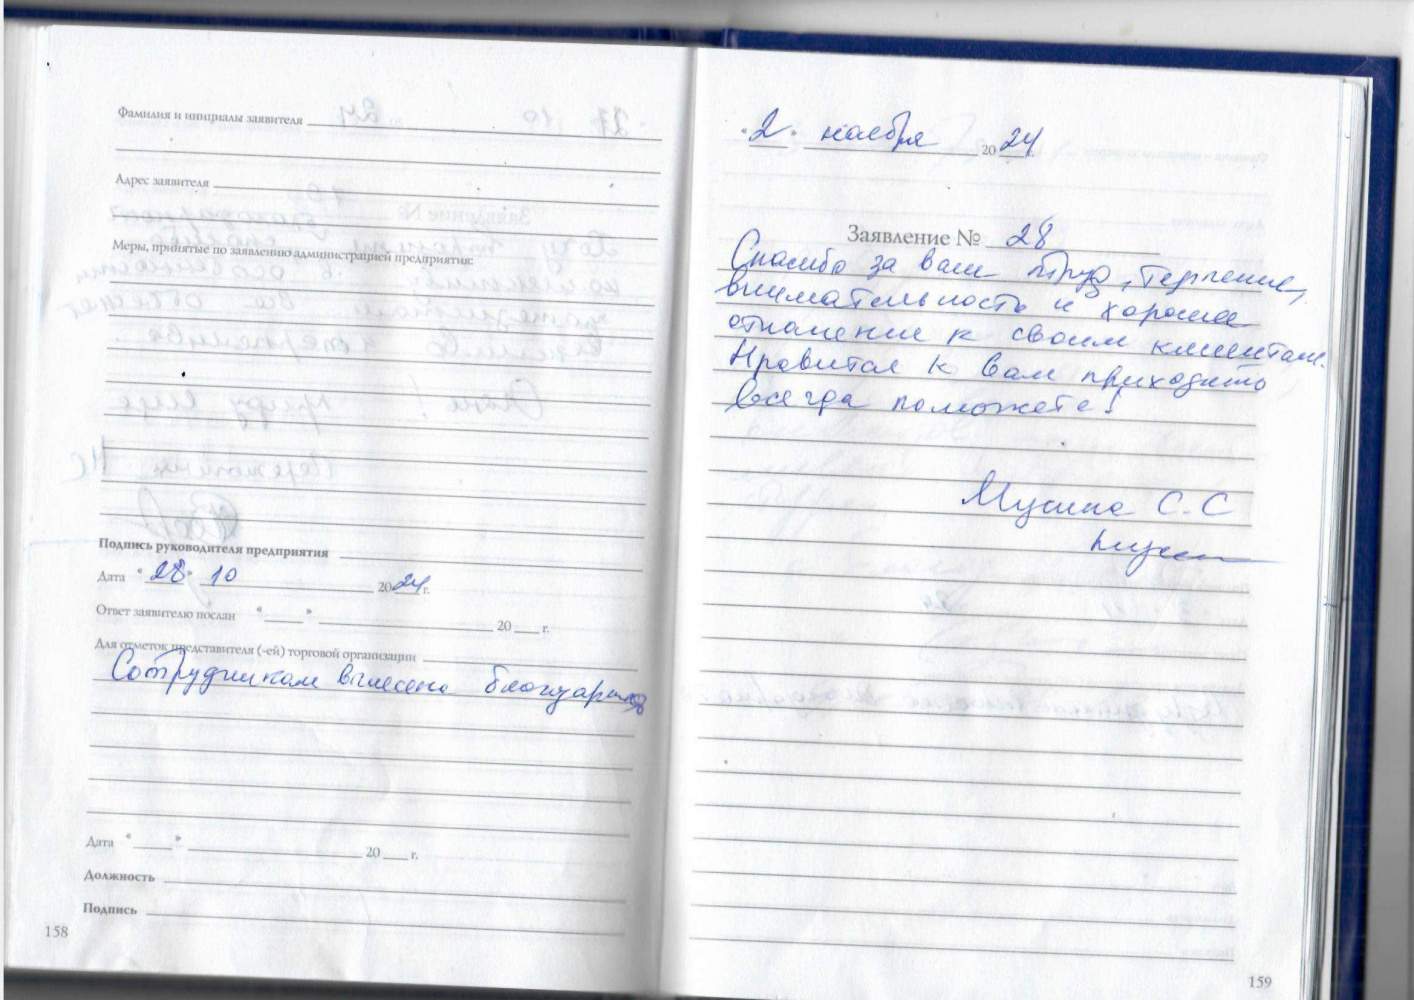 Фамилия и инициалы заявителя
Адрес заявителя
Меры, принятые по заявлению администрацией предприятия:
Подпись руководителя предприятия
Дата "28" 10 2024 г.
Ответ заявителю послан " " 20 г.
Для отметок представителя (-ей) торговой организации
Сотрудникам вынесена благодарность
Дата " " 20 г.
Должность
Подпись
158
"2" ноября 2024
Заявление № 28
Спасибо за ваш труд, терпение,
внимательность и хорошее
отношение к своим клиентам.
Нравится к вам приходить
всегда поможете!
Мусина С.С
159